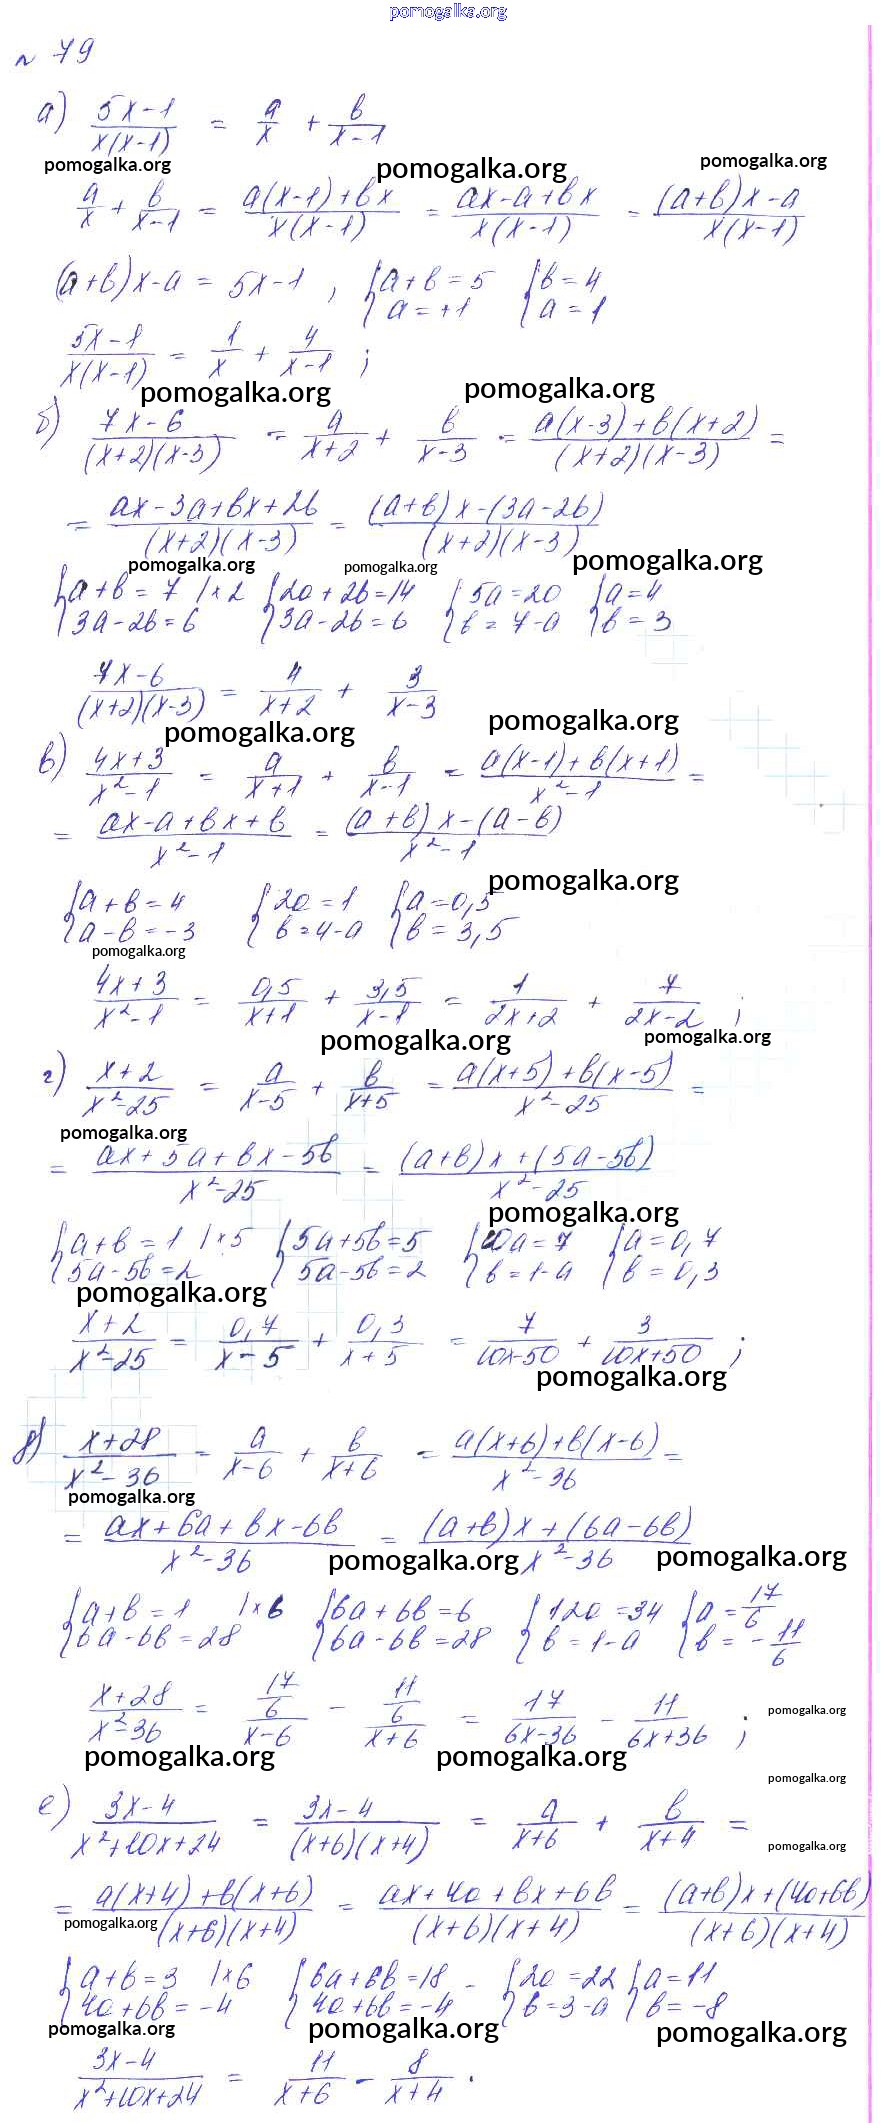 pomogalka.org
№ 79
а) (5x-1)/(x(x-1)) = a/x + b/(x-1)
pomogalka.org pomogalka.org pomogalka.org
a/x + b/(x-1) = (a(x-1)+bx)/(x(x-1)) = (ax-a+bx)/(x(x-1)) = ((a+b)x-a)/(x(x-1))
(a+b)x-a = 5x-1 , { a+b=5 { b=4
a=+1 a=1
(5x-1)/(x(x-1)) = 1/x + 4/(x-1) ;
pomogalka.org pomogalka.org
б) (7x-6)/((x+2)(x-3)) = a/(x+2) + b/(x-3) = (a(x-3)+b(x+2))/((x+2)(x-3)) =
= (ax-3a+bx+2b)/((x+2)(x-3)) = ((a+b)x-(3a-2b))/((x+2)(x-3))
pomogalka.org pomogalka.org pomogalka.org
{ a+b=7 |×2 { 2a+2b=14 { 5a=20 { a=4
3a-2b=6 3a-2b=6 b=7-a b=3
(7x-6)/((x+2)(x-3)) = 4/(x+2) + 3/(x-3)
pomogalka.org pomogalka.org
в) (4x+3)/(x²-1) = a/(x+1) + b/(x-1) = (a(x-1)+b(x+1))/(x²-1) =
= (ax-a+bx+b)/(x²-1) = ((a+b)x-(a-b))/(x²-1)
pomogalka.org
{ a+b=4 { 2a=1 { a=0,5
a-b=-3 b=4-a b=3,5
pomogalka.org
(4x+3)/(x²-1) = 0,5/(x+1) + 3,5/(x-1) = 1/(2x+2) + 7/(2x-2) ;
pomogalka.org pomogalka.org pomogalka.org
г) (x+2)/(x²-25) = a/(x-5) + b/(x+5) = (a(x+5)+b(x-5))/(x²-25) =
pomogalka.org
= (ax+5a+bx-5b)/(x²-25) = ((a+b)x+(5a-5b))/(x²-25)
pomogalka.org
{ a+b=1 |×5 { 5a+5b=5 { 10a=7 { a=0,7
5a-5b=2 5a-5b=2 b=1-a b=0,3
pomogalka.org
(x+2)/(x²-25) = 0,7/(x-5) + 0,3/(x+5) = 7/(10x-50) + 3/(10x+50) ;
pomogalka.org
д) (x+28)/(x²-36) = a/(x-6) + b/(x+6) = (a(x+6)+b(x-6))/(x²-36) =
pomogalka.org
= (ax+6a+bx-6b)/(x²-36) = ((a+b)x+(6a-6b))/(x²-36)
pomogalka.org pomogalka.org
{ a+b=1 |×6 { 6a+6b=6 { 12a=34 { a=17/6
6a-6b=28 6a-6b=28 b=1-a b=-11/6
(x+28)/(x²-36) = (17/6)/(x-6) - (11/6)/(x+6) = 17/(6x-36) - 11/(6x+36) ;
pomogalka.org
pomogalka.org pomogalka.org
pomogalka.org
е) (3x-4)/(x²+10x+24) = (3x-4)/((x+6)(x+4)) = a/(x+6) + b/(x+4) =
pomogalka.org
= (a(x+4)+b(x+6))/((x+6)(x+4)) = (ax+4a+bx+6b)/((x+6)(x+4)) = ((a+b)x+(4a+6b))/((x+6)(x+4))
pomogalka.org
{ a+b=3 |×6 { 6a+6b=18 - { 2a=22 { a=11
4a+6b=-4 4a+6b=-4 b=3-a b=-8
pomogalka.org pomogalka.org pomogalka.org
(3x-4)/(x²+10x+24) = 11/(x+6) - 8/(x+4) .